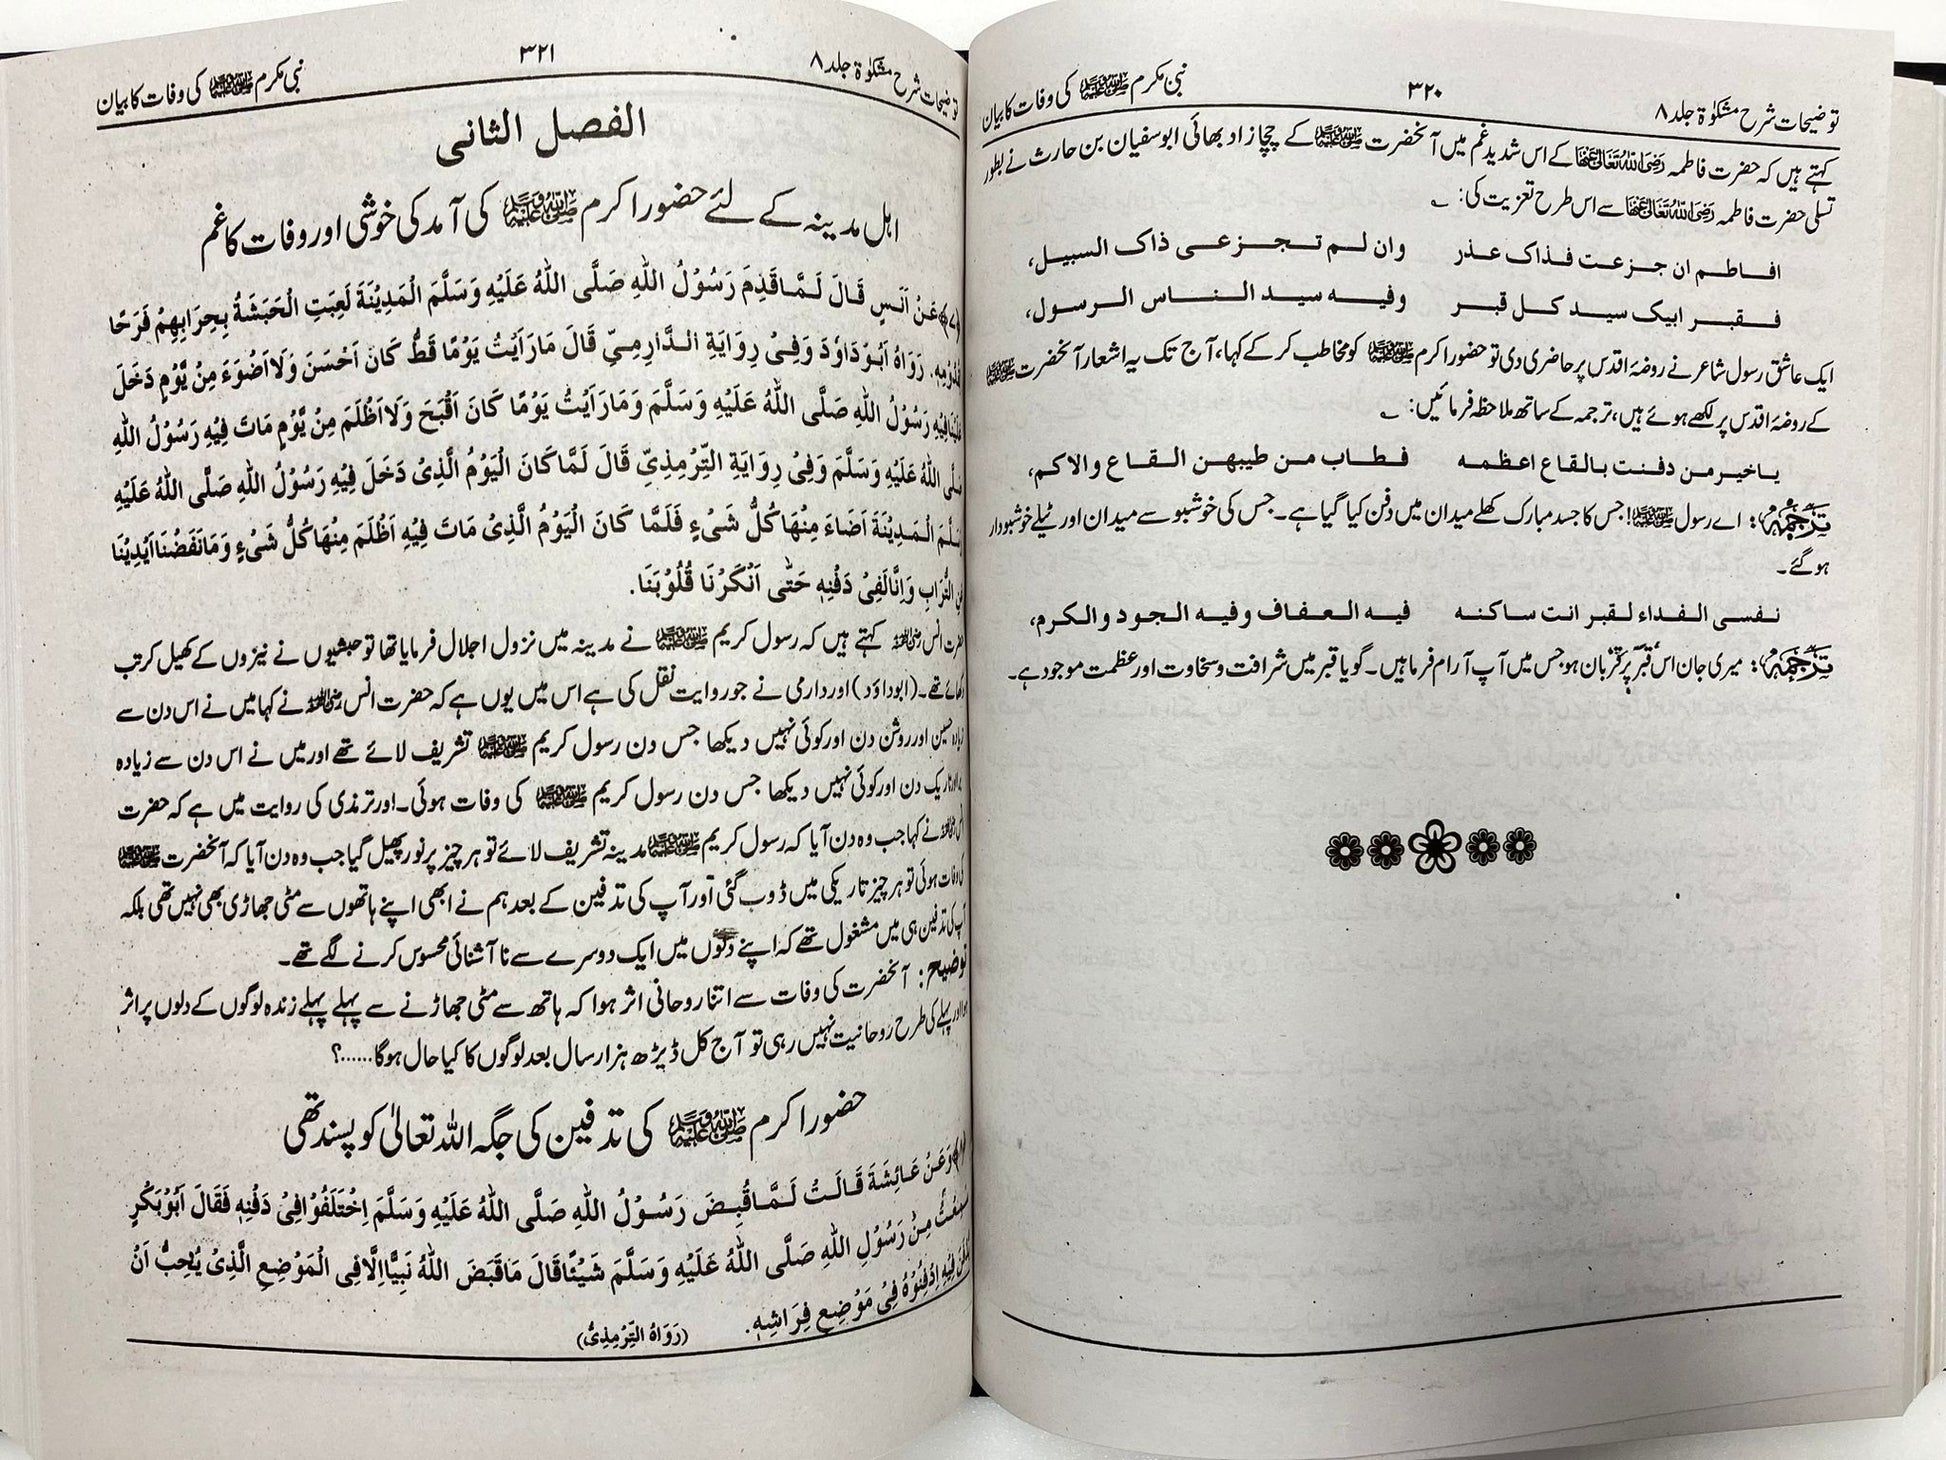 توضیحات شرح مشکوٰۃ جلد ۸
۳۲۰
نبی مکرم ﷺ کی وفات کا بیان
کہتے ہیں کہ حضرت فاطمہ رَضِیَ اللّٰہُ تَعَالٰی عَنْهَا کے اس شدید غم میں آنحضرت ﷺ کے چچازاد بھائی ابوسفیان بن حارث نے بطور
تسلی حضرت فاطمہ رَضِیَ اللّٰہُ تَعَالٰی عَنْهَا سے اس طرح تعزیت کی: ؎
افاطم ان جزعت فذاک عذر وان لم تجزعی ذاک السبیل،
فقبر ابیک سید کل قبر وفیه سید الناس الرسول،
ایک عاشق رسول شاعر نے روضۂ اقدس پر حاضری دی تو حضور اکرم ﷺ کو مخاطب کر کے کہا، آج تک یہ اشعار آنحضرت ﷺ
کے روضۂ اقدس پر لکھے ہوئے ہیں، ترجمہ کے ساتھ ملاحظہ فرمائیں: ؎
یاخیر من دفنت بالقاع اعظمه فطاب من طیبهن القاع والاکم،
ترجمہ: اے رسول ﷺ! جس کا جسد مبارک کھلے میدان میں دفن کیا گیا ہے۔ جس کی خوشبو سے میدان اور ٹیلے خوشبودار
ہو گئے۔
نفسی الفداء لقبر انت ساکنه فیه العفاف وفیه الجود والکرم،
ترجمہ: میری جان اس قبر پر قربان ہو جس میں آپ آرام فرما ہیں۔ گویا قبر میں شرافت و سخاوت اور عظمت موجود ہے۔
توضیحات شرح مشکوٰۃ جلد ۸
۳۲۱
نبی مکرم ﷺ کی وفات کا بیان
الفصل الثانی
اہل مدینہ کے لئے حضور اکرم ﷺ کی آمد کی خوشی اور وفات کا غم
﴿۷﴾ عَنْ اَنَسٍ قَالَ لَمَّا قَدِمَ رَسُوْلُ اللّٰہِ صَلَّی اللّٰہُ عَلَیْهِ وَسَلَّمَ الْمَدِیْنَةَ لَعِبَتِ الْحَبَشَةُ بِحِرَابِهِمْ فَرَحًا
لِقُدُوْمِهٖ. رَوَاهُ اَبُوْدَاوٗدَ وَفِیْ رِوَایَةِ الدَّارِمِیِّ قَالَ مَارَاَیْتُ یَوْمًا قَطُّ کَانَ اَحْسَنَ وَلَااَضْوَءَ مِنْ یَّوْمٍ دَخَلَ
عَلَیْنَا فِیْهِ رَسُوْلُ اللّٰہِ صَلَّی اللّٰہُ عَلَیْهِ وَسَلَّمَ وَمَارَاَیْتُ یَوْمًا کَانَ اَقْبَحَ وَلَااَظْلَمَ مِنْ یَّوْمٍ مَاتَ فِیْهِ رَسُوْلُ اللّٰہِ
صَلَّی اللّٰہُ عَلَیْهِ وَسَلَّمَ وَفِیْ رِوَایَةِ التِّرْمِذِیِّ قَالَ لَمَّا کَانَ الْیَوْمُ الَّذِیْ دَخَلَ فِیْهِ رَسُوْلُ اللّٰہِ صَلَّی اللّٰہُ عَلَیْهِ
وَسَلَّمَ الْمَدِیْنَةَ اَضَاءَ مِنْهَا کُلُّ شَیْءٍ فَلَمَّا کَانَ الْیَوْمُ الَّذِیْ مَاتَ فِیْهِ اَظْلَمَ مِنْهَا کُلُّ شَیْءٍ وَمَانَفَضْنَا اَیْدِیَنَا
عَنِ التُّرَابِ وَاِنَّا لَفِیْ دَفْنِهٖ حَتّٰی اَنْکَرْنَا قُلُوْبَنَا.
حضرت انس رضی اللہ عنہ کہتے ہیں کہ رسول کریم ﷺ نے مدینہ میں نزول اجلال فرمایا تھا تو حبشیوں نے نیزوں کے کھیل کرتب
دکھائے تھے۔ (ابوداؤد) اور دارمی نے جو روایت نقل کی ہے اس میں یوں ہے کہ حضرت انس رضی اللہ عنہ نے کہا میں نے اس دن سے
زیادہ حسین اور روشن دن اور کوئی نہیں دیکھا جس دن رسول کریم ﷺ تشریف لائے تھے اور میں نے اس دن سے زیادہ
اور تاریک دن اور کوئی نہیں دیکھا جس دن رسول کریم ﷺ کی وفات ہوئی۔ اور ترمذی کی روایت میں ہے کہ حضرت
انس رضی اللہ عنہ نے کہا جب وہ دن آیا کہ رسول کریم ﷺ مدینہ تشریف لائے تو ہر چیز پر نور پھیل گیا جب وہ دن آیا کہ آنحضرت ﷺ
کی وفات ہوئی تو ہر چیز تاریکی میں ڈوب گئی اور آپ کی تدفین کے بعد ہم نے ابھی اپنے ہاتھوں سے مٹی جھاڑی بھی نہیں تھی بلکہ
آپ کی تدفین ہی میں مشغول تھے کہ اپنے دلوں میں ایک دوسرے سے نا آشنائی محسوس کرنے لگے تھے۔
توضیح: آنحضرت کی وفات سے اتنا روحانی اثر ہوا کہ ہاتھ سے مٹی جھاڑنے سے پہلے پہلے زندہ لوگوں کے دلوں پر اثر
ہوا اور پہلے کی طرح روحانیت نہیں رہی تو آج کل ڈیڑھ ہزار سال بعد لوگوں کا کیا حال ہوگا......؟
حضور اکرم ﷺ کی تدفین کی جگہ اللہ تعالیٰ کو پسند تھی
﴿۸﴾ وَعَنْ عَائِشَةَ قَالَتْ لَمَّا قُبِضَ رَسُوْلُ اللّٰہِ صَلَّی اللّٰہُ عَلَیْهِ وَسَلَّمَ اِخْتَلَفُوْا فِیْ دَفْنِهٖ فَقَالَ اَبُوْبَکْرٍ
سَمِعْتُ مِنْ رَسُوْلِ اللّٰہِ صَلَّی اللّٰہُ عَلَیْهِ وَسَلَّمَ شَیْئًا قَالَ مَاقَبَضَ اللّٰہُ نَبِیًّا اِلَّا فِی الْمَوْضِعِ الَّذِیْ یُحِبُّ اَنْ
یُدْفَنَ فِیْهِ اِدْفِنُوْهُ فِیْ مَوْضِعِ فِرَاشِهٖ.
(رَوَاهُ التِّرْمِذِیُّ)